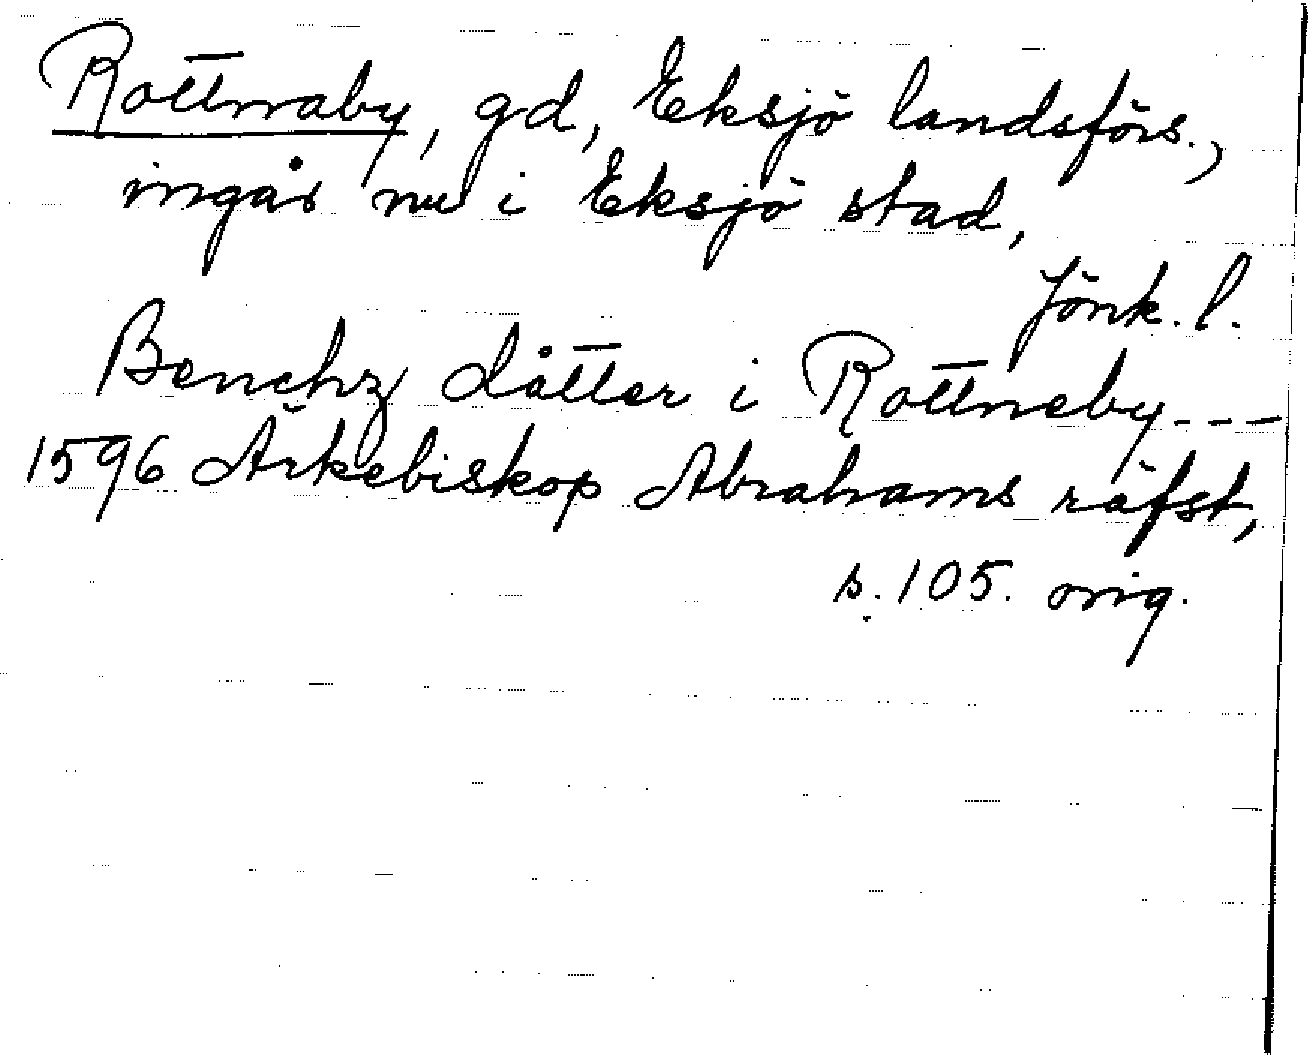 Rottnaby, gd, Eksjö landsförs.,
ingår nu i Eksjö stad,
Jönk. l.
Benchz dåtter i Rottneby---
1596 Ärkebiskop Abrahams räfst,
s. 105. orig.